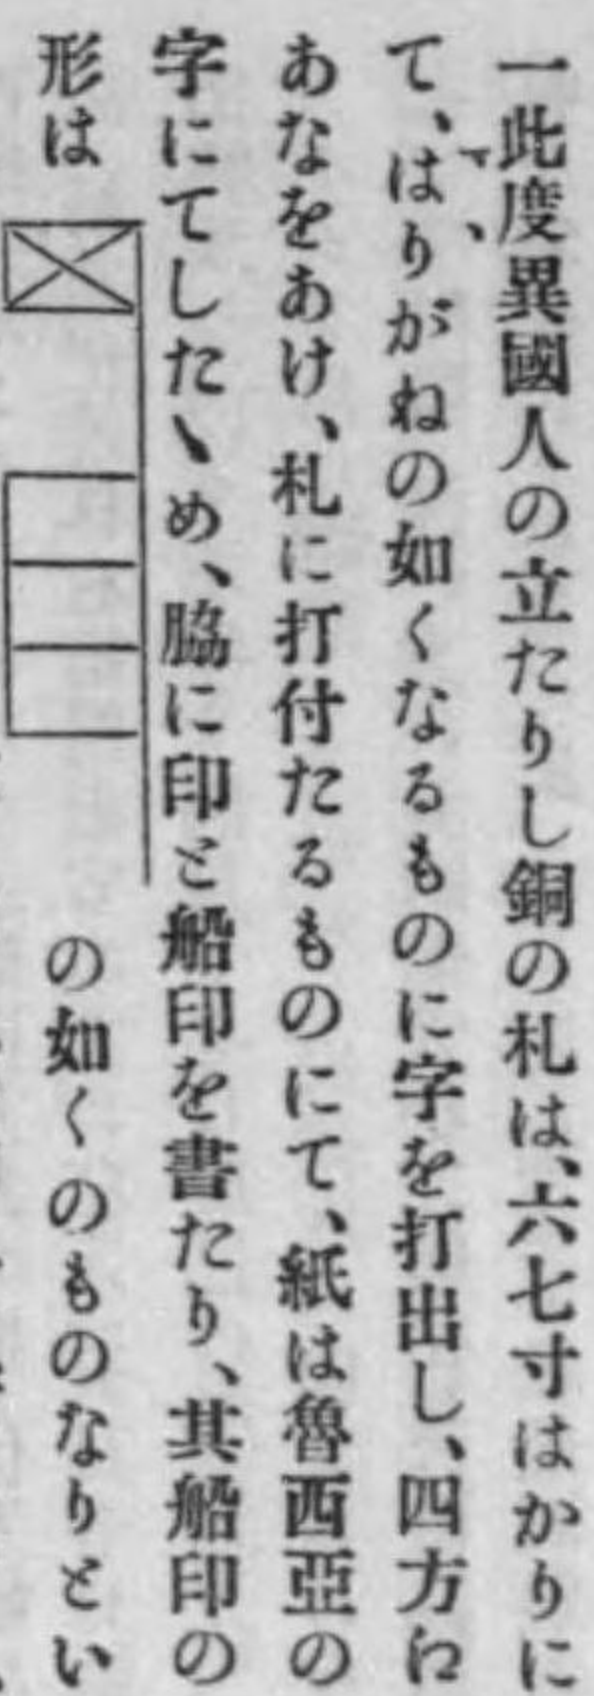 一此度異國人の立たりし銅の札は、六七寸はかりに
て、はりがねの如くなるものに字を打出し、四方に
あなをあけ、札に打付たるものにて、紙は魯西亞の
字にてしたゝめ、脇に印と船印を書たり、其船印の
形は の如くのものなりとい